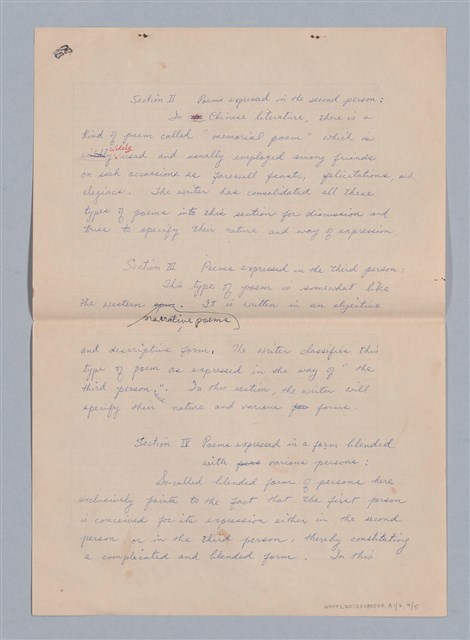 Section II Poems expressed in the second person:
In Chinese literature, there is a
kind of poem called "memorial poem" which is
widely used and usually employed among friends
on such occasions as farewell feasts, felicitations, and
elegiacs. The writer has consolidated all these
types of poems into this section for discussion and
tries to specify their nature and way of expression
Section III Poems expressed in the third person:
This type of poem is somewhat like
the western It is written in an objective
narrative poems
and descriptive form. The writer classifies this
type of poem as expressed in the way of "the
third person." In this section, the writer will
specify their nature and various forms.
Section IV Poems expressed in a form blended
with various persons:
So-called blended form of persons here
exclusively points to the fact that the first person
is conceived for its expression either in the second
person or in the third person, thereby constituting
a complicated and blended form. In this